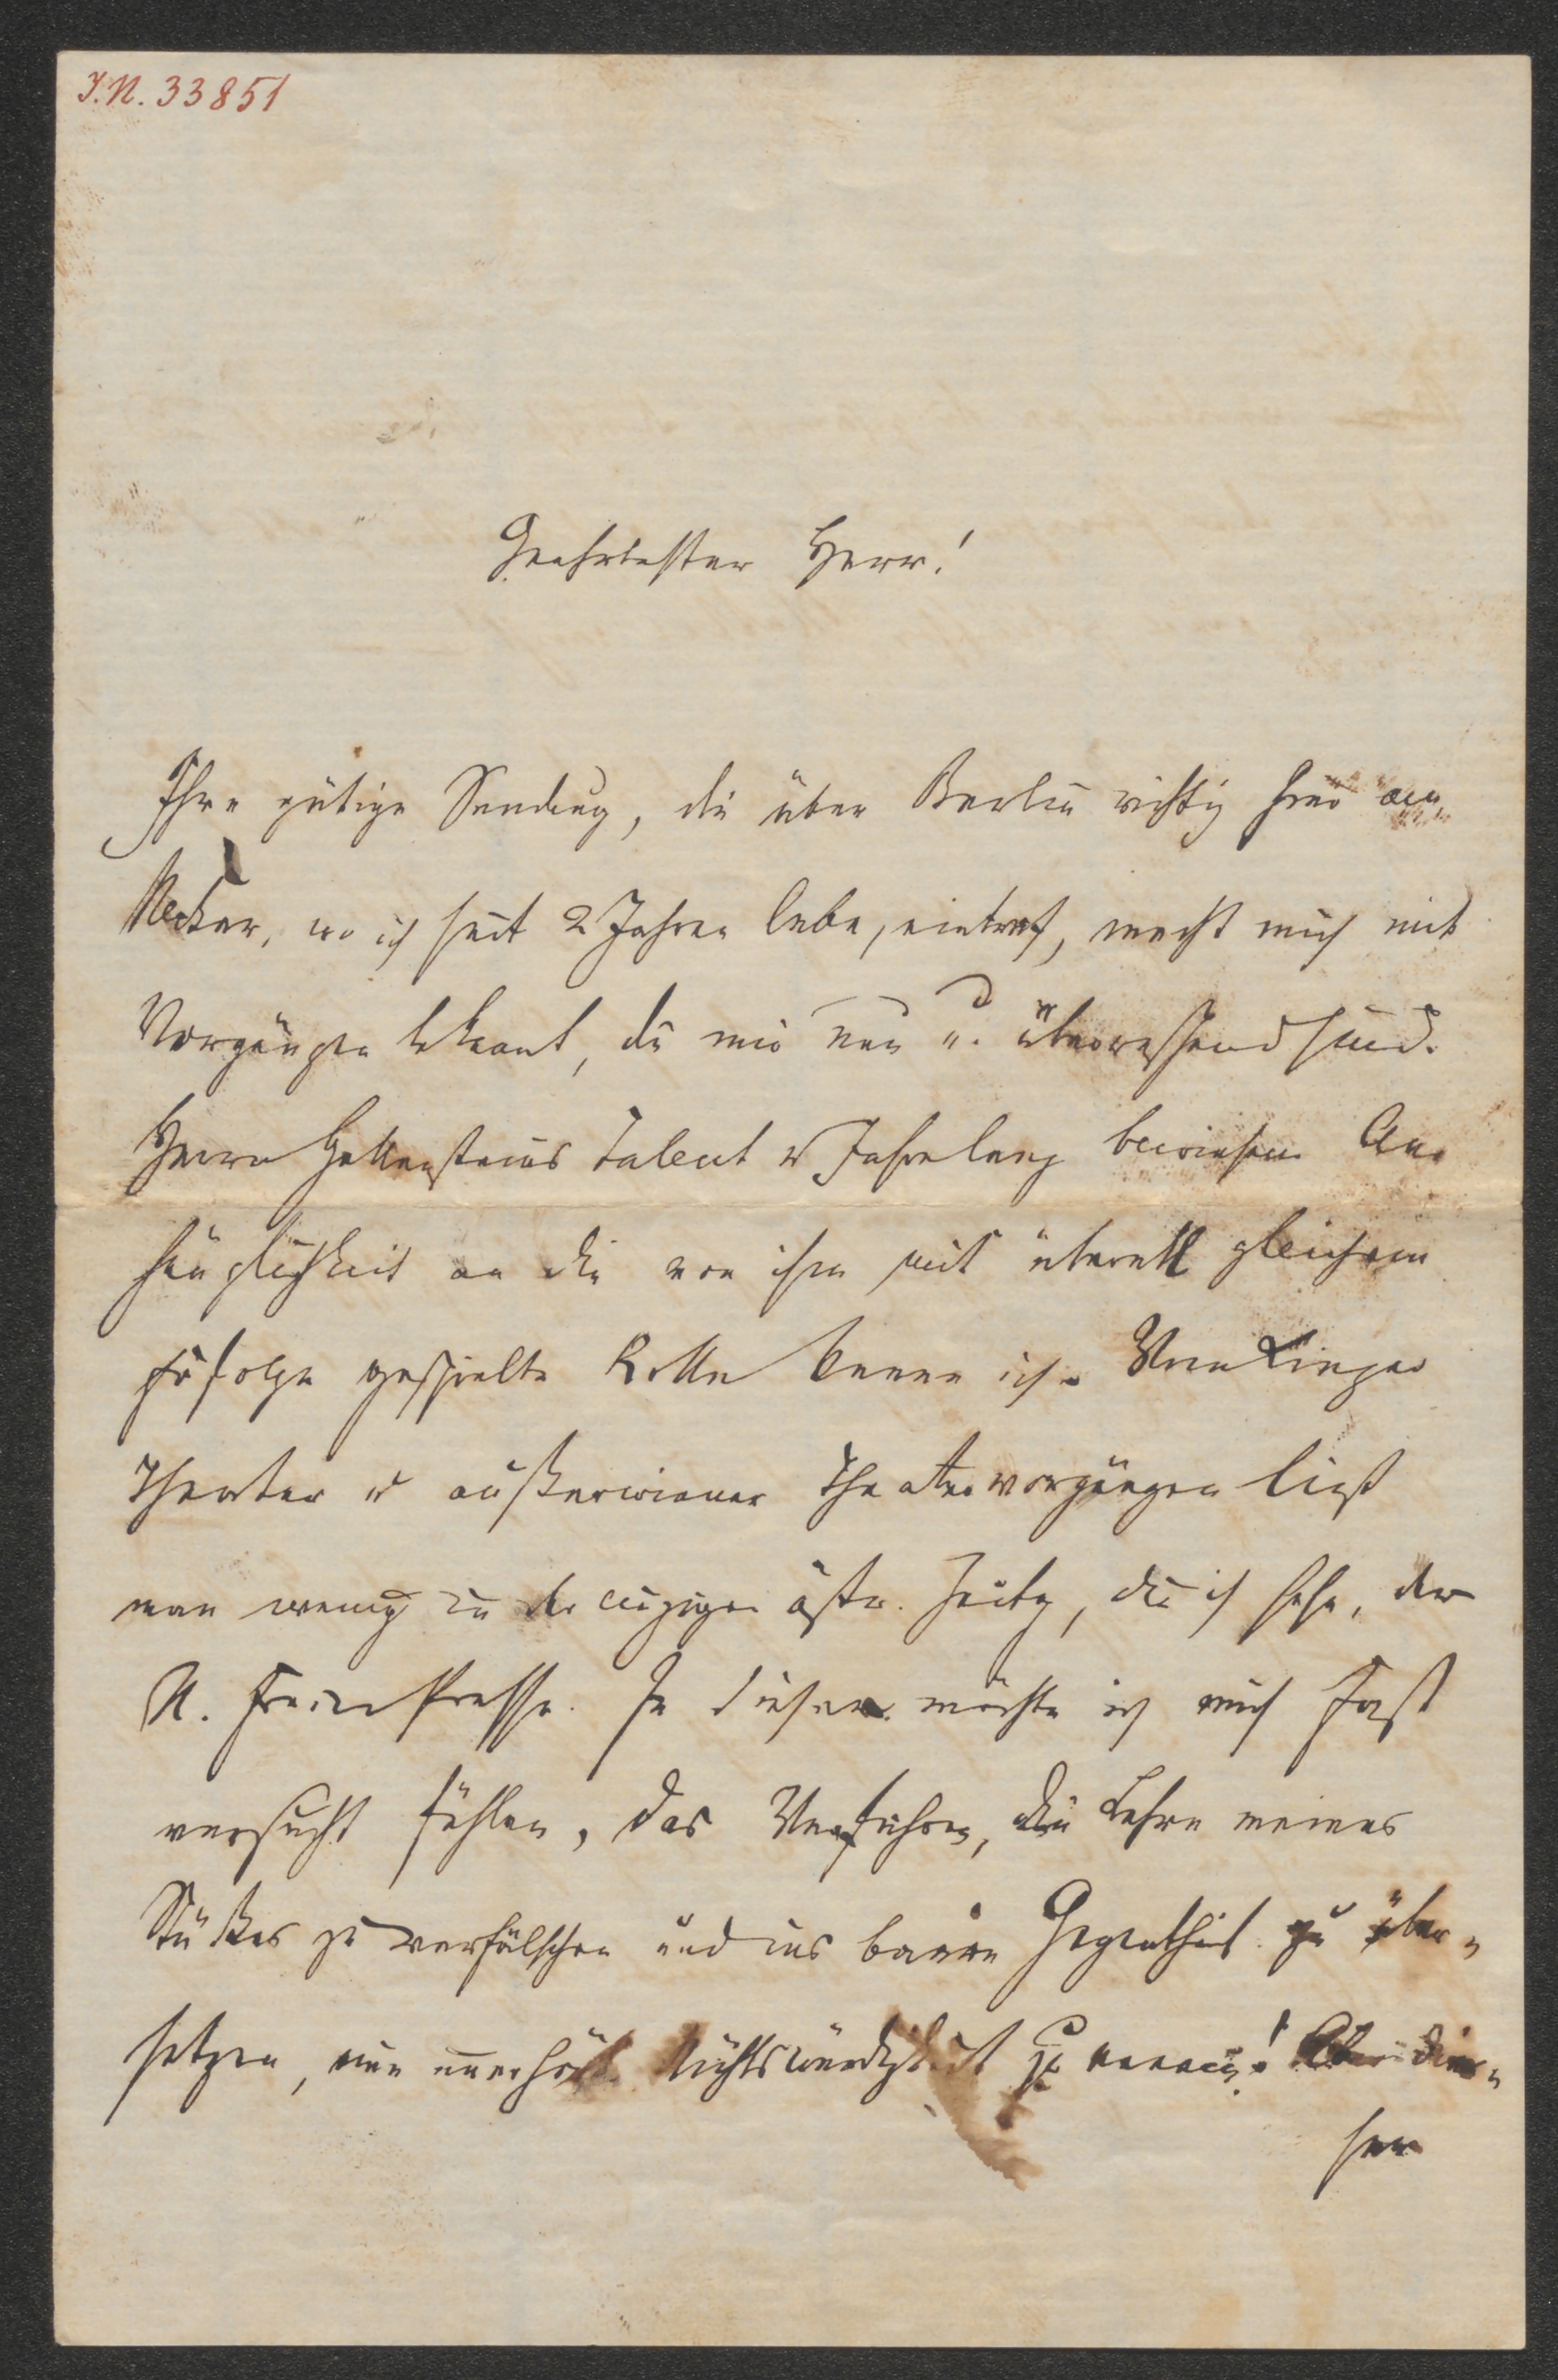 I.N. 33851
Geehrtester Herr!
Ihre gütige Sendung, die über Berlin richtig hier am
Neckar, wo ich seit 2 Jahren lebe, eintraf, macht mich mit
Vorgängen bekannt, die mir neu u. überraschend sind.
Herrn Hallensteins Talent u Jahrelang bewiesene An-
hänglichkeit an die von ihm mit überall gleichem
Erfolge gespielte Rolle kenne ich. Von
Theater u außerwiener Theatervorgängen liest
man wenig in der einzigen östr. Zeitg, die ich sehe, der
N. Freien Presse. In dieser möchte ich mich fast
versucht fühlen, das Verfahren, die Lehre meines
Stückes zu verfälschen und ins baare Gegentheil zu über-
setzen, eine unerhörte Nichtswürdigkeit zu nennen! Aber die-
sen